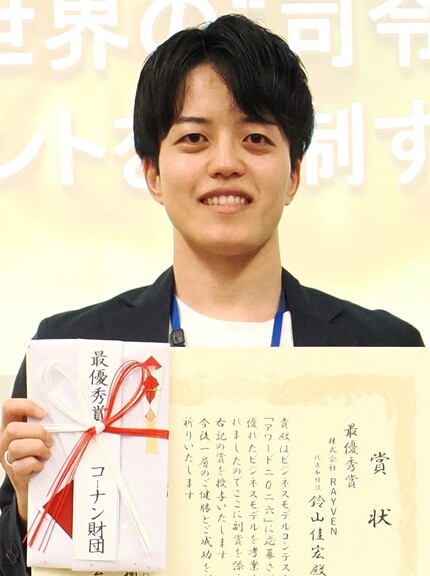 世界の"司令
ントを 制す
最優秀賞
コーナン財団
賞状
最優秀賞
株式会社RAYVEN
代表取締役
鈴山佳宏殿
貴殿はビジネスモデルコンテス
「アワード二〇二六」に応募され
優れたビジネスモデルを考案
れましたのでここに副賞を添
右記の賞を授与いたします
今後一層のご健勝とご成功を
祈りいたします